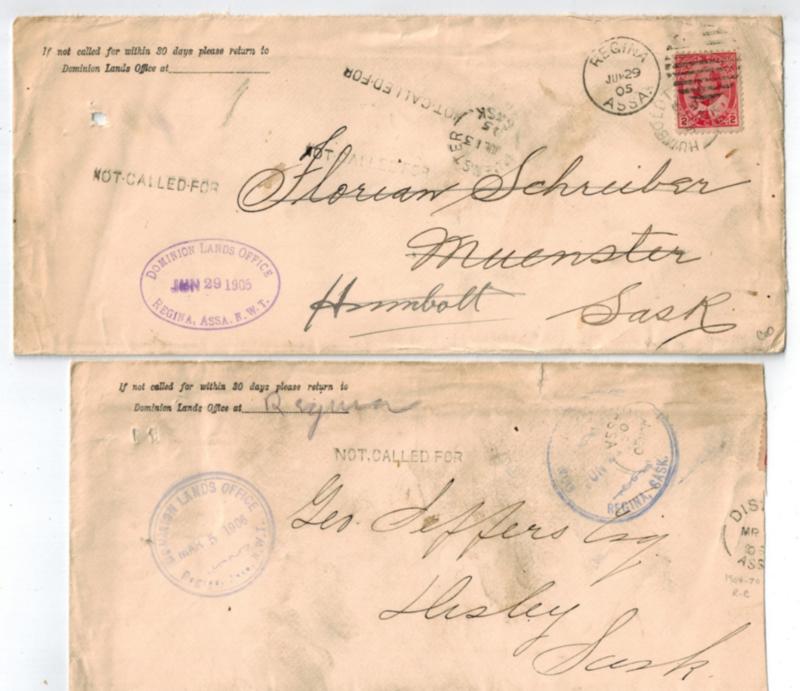 If not called for within 30 days please return to
Dominion Lands Office at
NOT-CALLED-FOR
REGINA
JUN 29
05
ASSA.
2 2
NOT-CALLED-FOR
NOT-CALLED-FOR
Florian Schreiber
Muenster
Humbolt Sask
DOMINION LANDS OFFICE
JUN 29 1905
REGINA, ASSA. N.W.T.
If not called for within 30 days please return to
Dominion Lands Office at Regina
NOT CALLED FOR
DOMINION LANDS OFFICE
MAR 5 1906
REGINA, SASK.
Geo. Jeffers Esq
Disley
Sask
DIS
MR
ASS
R-C